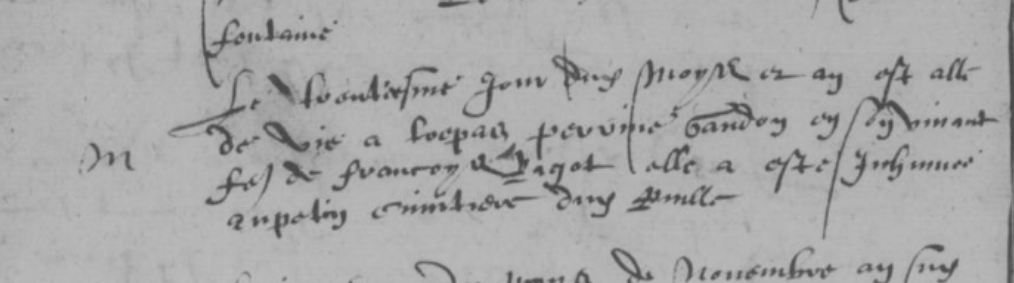 fontaine
Le trentiesme jour dud moys et an est allé
de vie a trepas perrine Gandon en son vivant
fe de francoys pigot elle a esté Inhumee
au petit cimitiere dud
M
de Novembre an sus